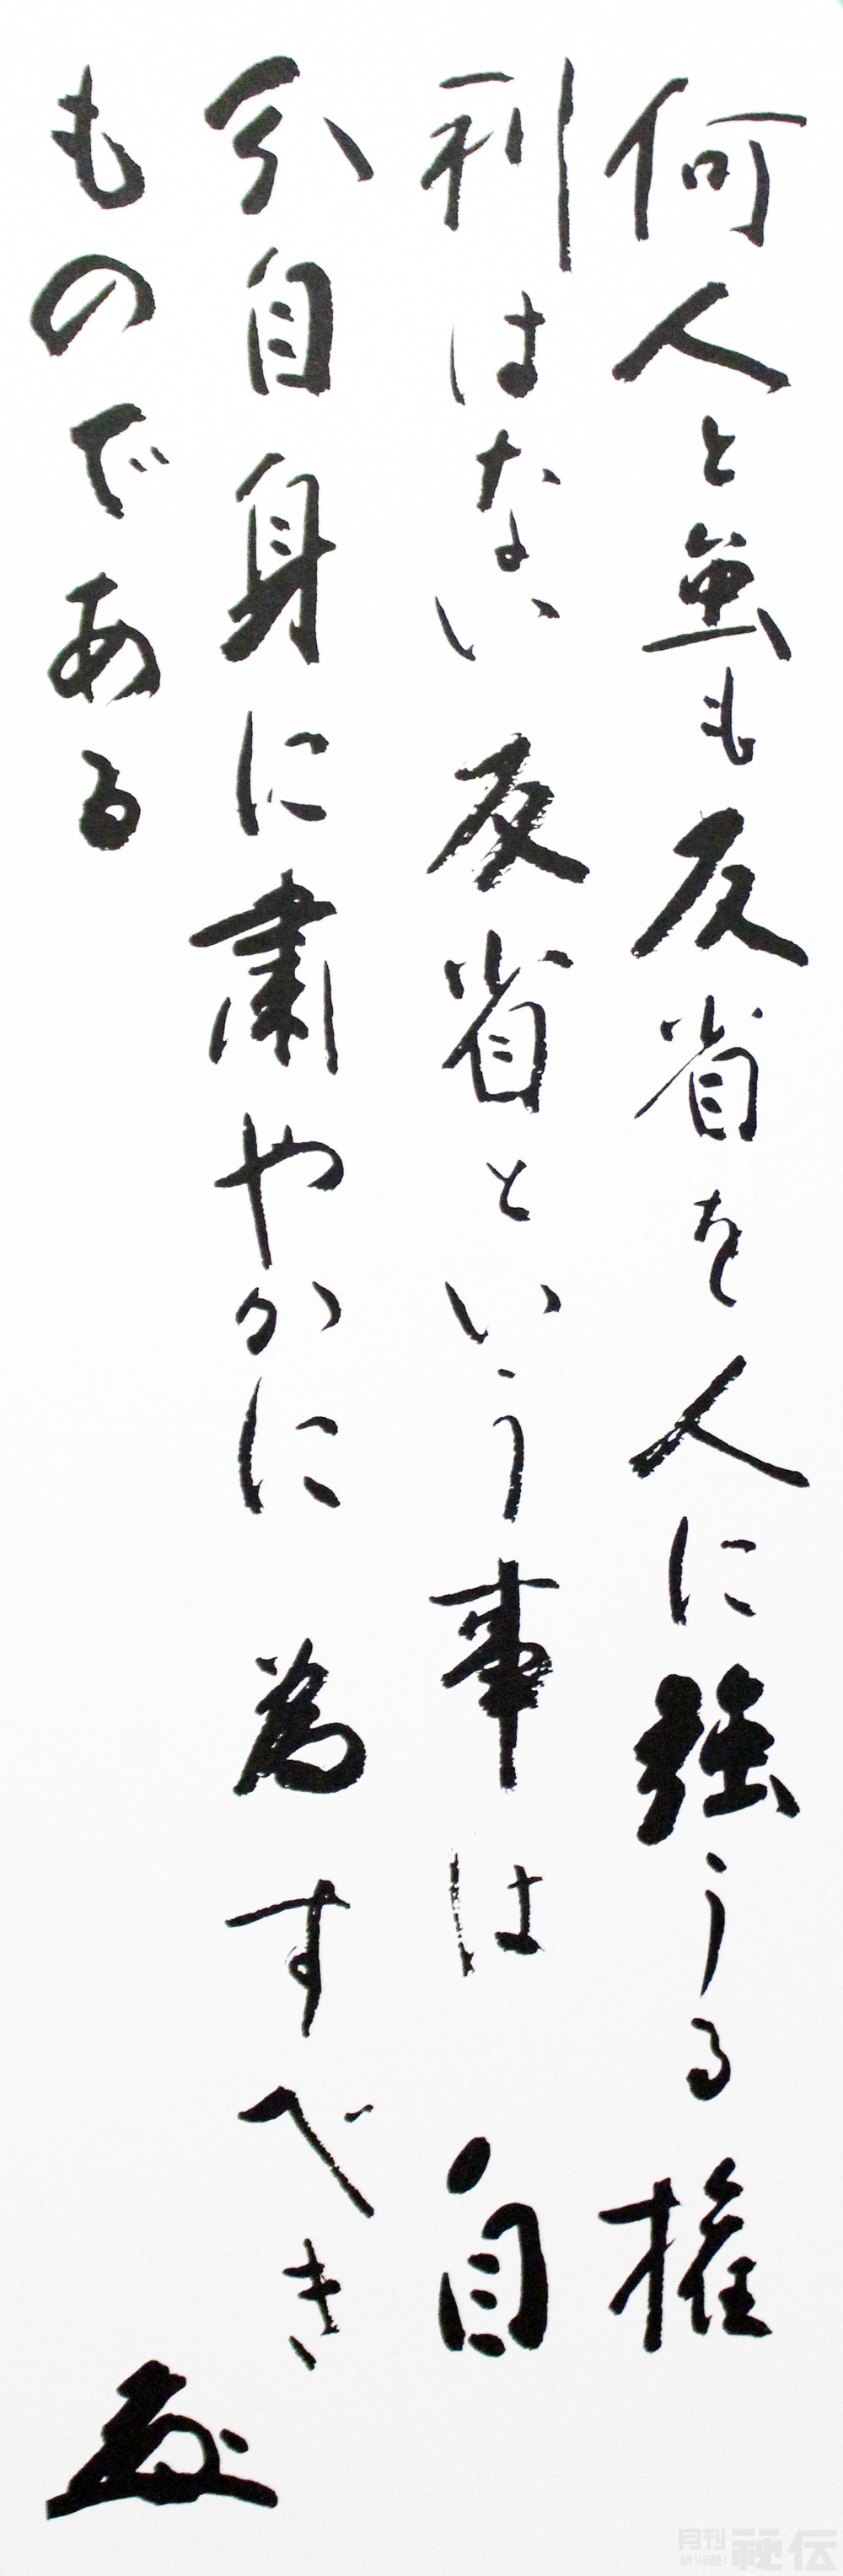 何人と雖も反省を人に強うる権
利はない反省という事は自
分自身に粛やかに為すべき
ものである
月刊 秘伝